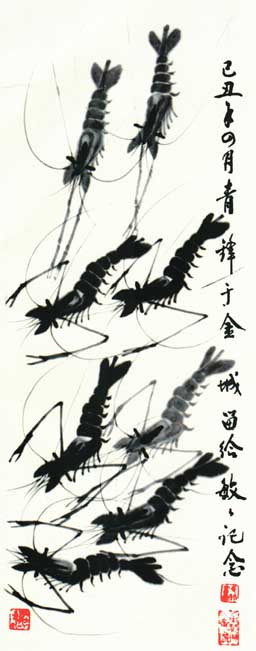 己丑年四月青锋于金城留给敏敏记念